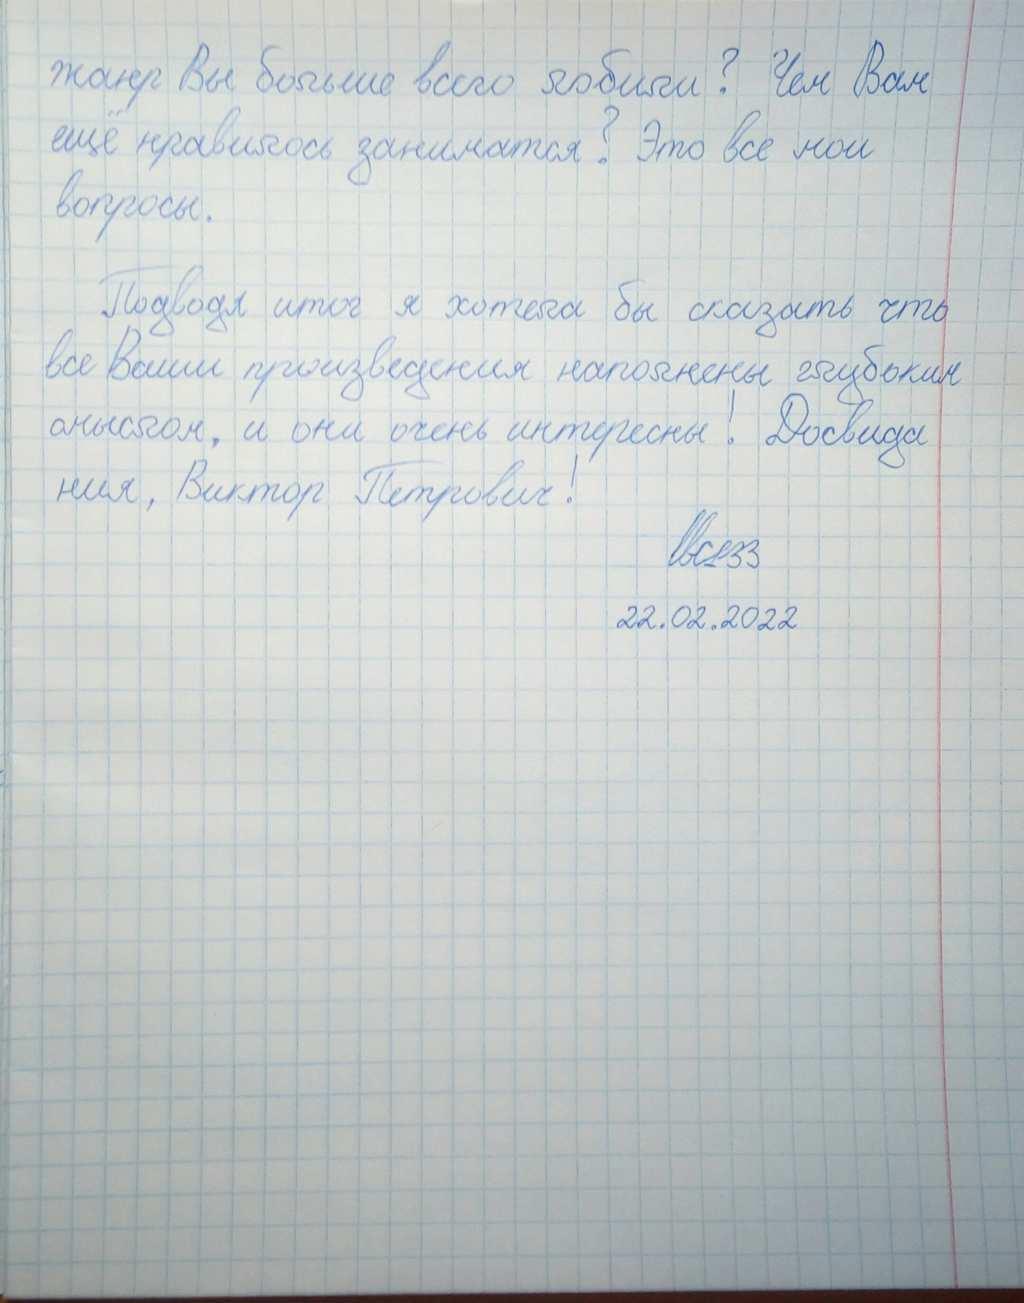 жанр Вы больше всего любили? Чем Вам
ещё нравилось заниматся? Это все мои
вопросы.
Подводя итог я хотела бы сказать что
все Ваши произведения наполнены глубоким
смыслом, и они очень интересны! Досвида
ния, Виктор Петрович!
22.02.2022